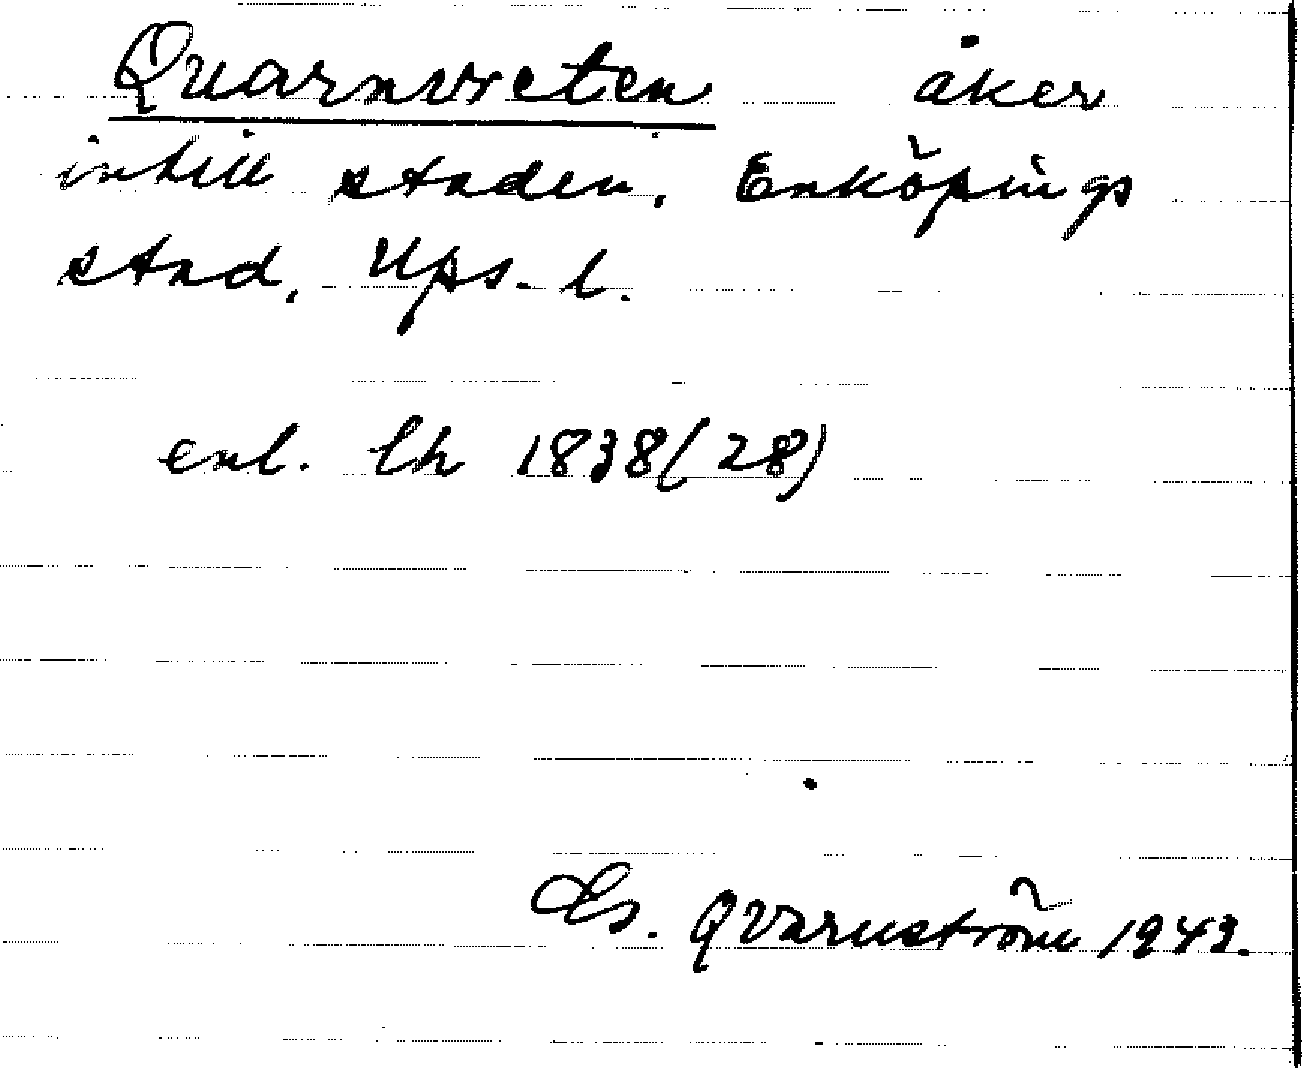 Quarnvreten åker
intill staden, Enköpings
stad, Ups. l.
enl. lh 1838(28)
Qvarnström 1943.